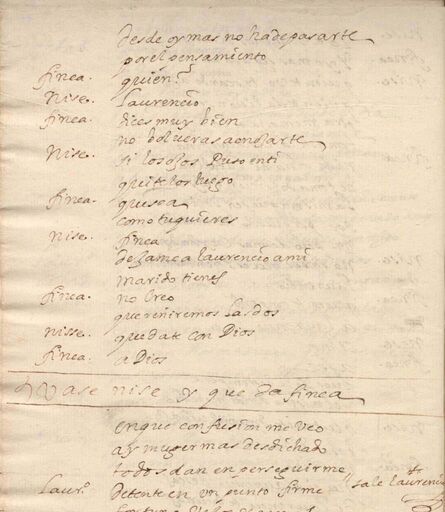 desde oy mas no ha de pasarte
por el pensamiento
finea. quien?
Nise. Laurencio
finea. dizes muy bien
no bolueras a onrarte
Nise. si los ojos Puso en ti
quite los luego
finea. que sea
como tu quieres
Nise. finea
dexame a laurencio a mi
marido tienes
finea. no Creo
que reniremos las dos
nisse. quedate con Dios
finea. a Dios
Vase nise y queda finea
en que confusion me veo
ay muger mas desdichada
todos dan en perseguirme
sale laurencio
Laur.º detente en un punto firme